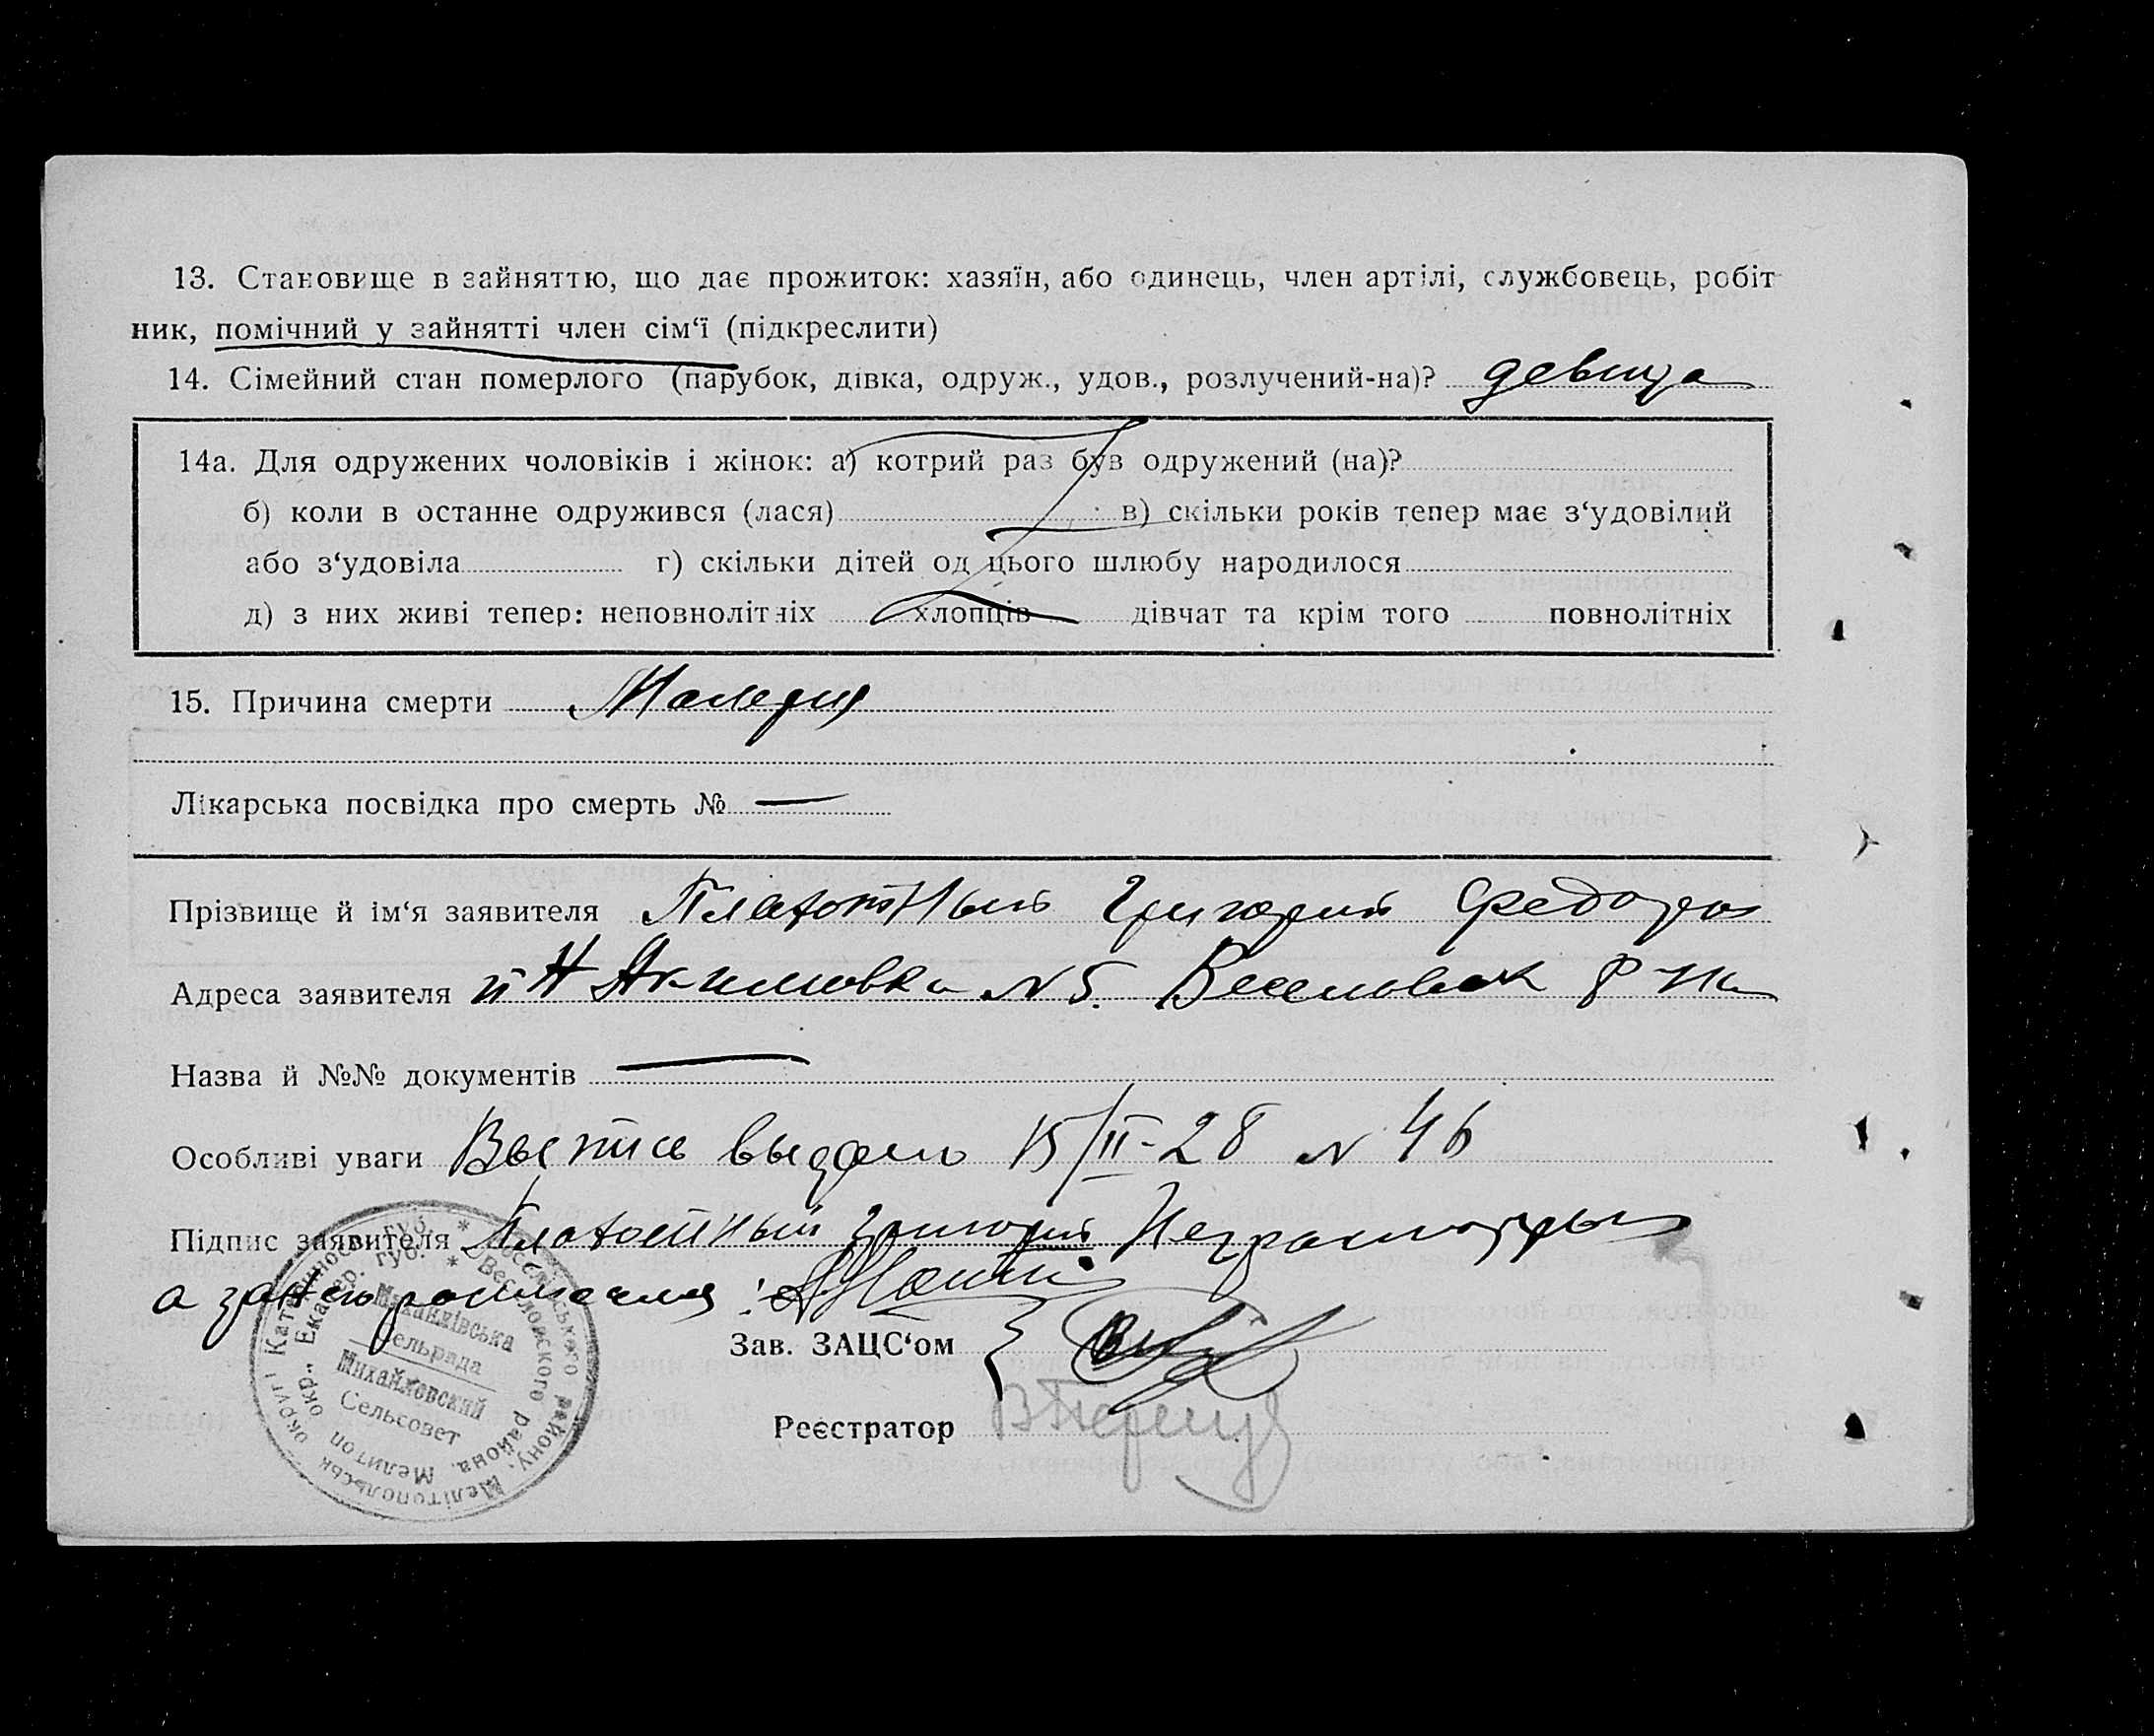 13. Становище в зайняттю, що дає прожиток: хазяїн, або одинець, член артілі, службовець, робіт
ник, помічний у зайнятті член сім‘ї (підкреслити)
14. Сімейний стан померлого (парубок, дівка, одруж., удов., розлучений-на)? девица
14а. Для одружених чоловіків і жінок: а) котрий раз був одружений (на)?
б) коли в останне одружився (лася) в) скільки років тепер має з‘удовілий
або з‘удовіла г) скільки дітей од цього шлюбу народилося
д) з них живі тепер: неповнолітніх хлопців дівчат та крім того повнолітніх
15. Причина смерти Малерия
Лікарська посвідка про смерть № —
Прізвище й ім‘я заявителя Григорий Федоров
Адреса заявителя п Н Акимовка N 5. Веселовск р-на
Назва й №№ документів —
Особливі уваги Выпись выдано 15/II-28 N 46
Підпис заявителя Григорий Неграмотный
а за него росписался:
Зав. ЗАЦС‘ом
Реєстратор
Михайлівська
Сельрада
Михайловский
Сельсовет